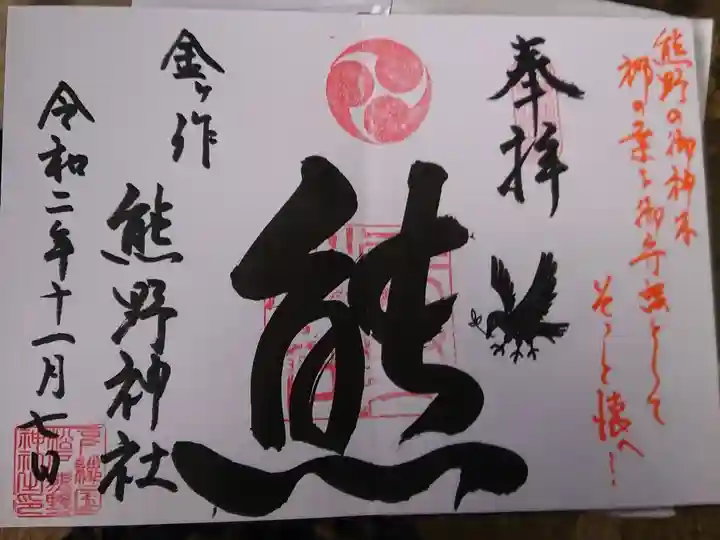 熊野の御神木
梛の葉を御守護として
そっと懐へ!
奉拝
熊
金ヶ作
熊野神社
令和二年十一月七日